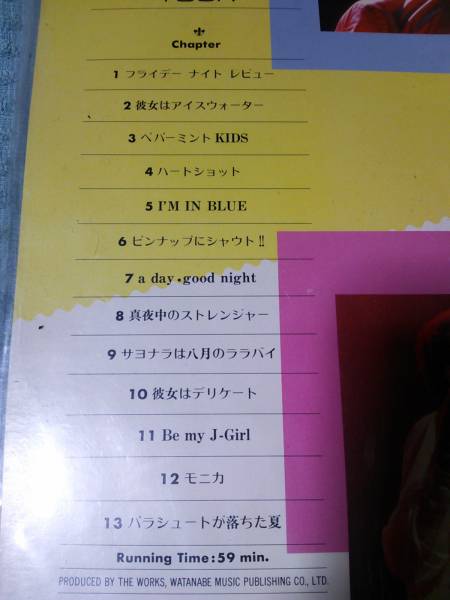 Chapter
1 フライデー ナイト レビュー
2 彼女はアイスウォーター
3 ペパーミント KIDS
4 ハートショット
5 I'M IN BLUE
6 ピンナップにシャウト!!
7 a day・good night
8 真夜中のストレンジャー
9 サヨナラは八月のララバイ
10 彼女はデリケート
11 Be my J-Girl
12 モニカ
13 パラシュートが落ちた夏
Running Time:59 min.
PRODUCED BY THE WORKS, WATANABE MUSIC PUBLISHING CO., LTD.